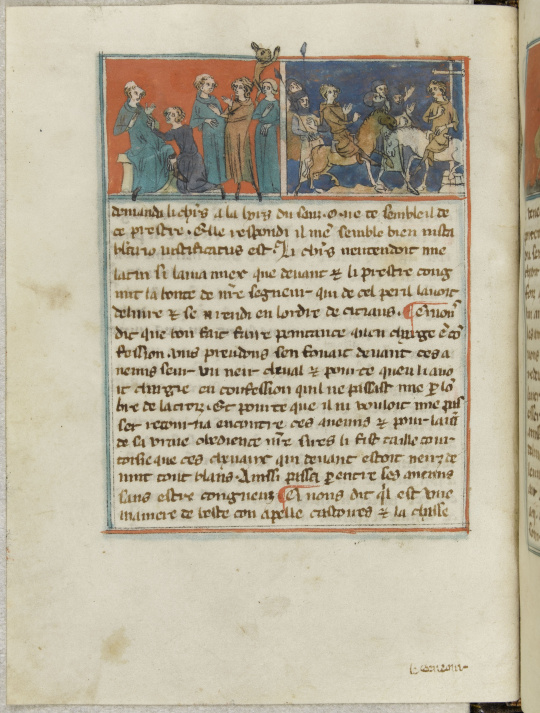 demanda li chrs a la vois du saui. Que te semble il de
ce prestre. Elle respondi il me semble bien mista
blario iustificatus est. Li chrs nentendoit mie
latin si lama miex que deuant ⁊ li prestre cong
nut la bonte de nre segneur qui de cel peril lauoit
deliure ⁊ se rendi en lordre de citiaus. ¶ Ci nous
dit que bon fait faire penitance quen charge en co
fession . Uns preudons sen fouait deuant ces a
nemis seur un neir cheual ⁊ pour ce quen li auo
it chargie en confession quil ne passast mie p lo
bre de la croiz . Et pour ce que il ni vouloit mie pas
ser retourna encontre ces anemis ⁊ pour
de sa vraie obedience nre sires li fist taille cour
toisie que ces cheuaus qui deuant estoit neirz de
uint tout blans . Ainssi passa p entre ses anemis
sans estre congneuz ¶ Ci nous dit ql est vne
maniere de beste con apelle castoires ⁊ la chasse